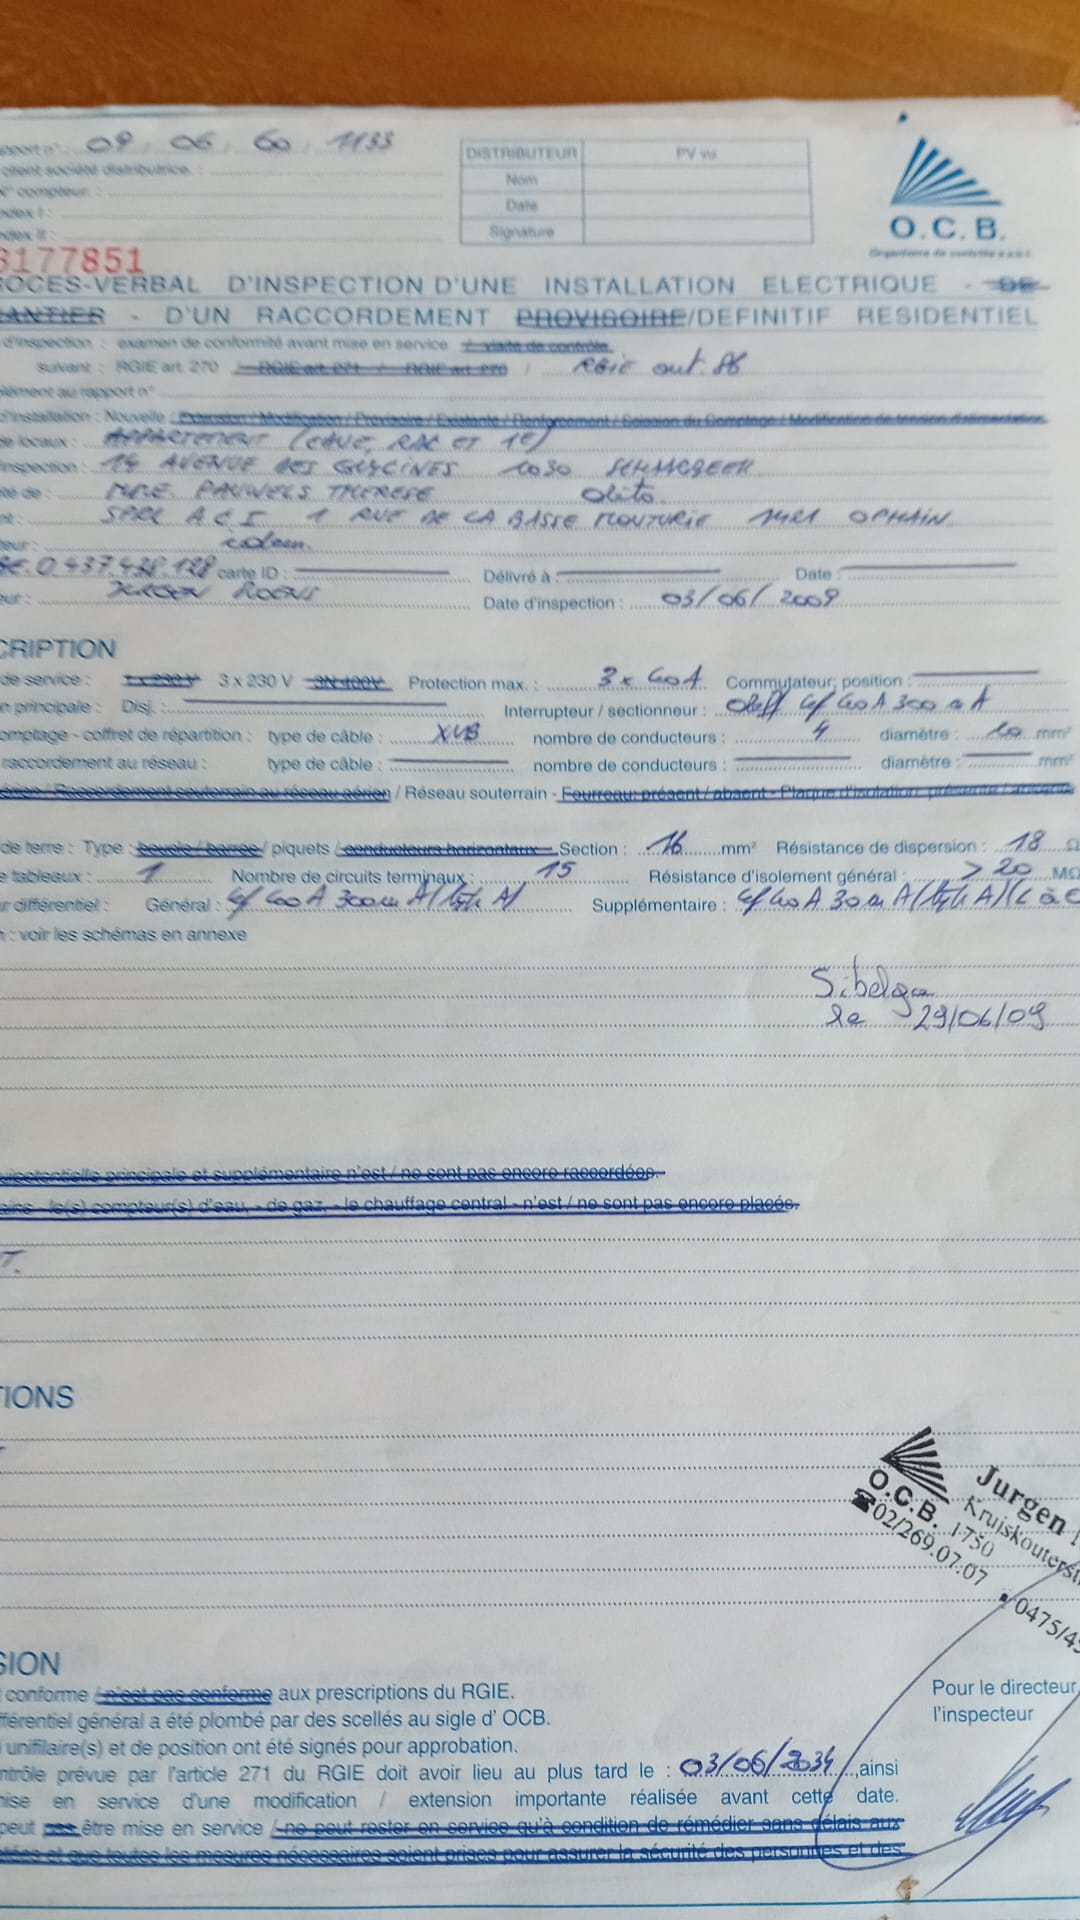 pport n° : 09 . 06 . 60 . 1133
client société distributrice. :
n° compteur. :
ndex I :
ndex II :
DISTRIBUTEUR PV vu
Nom
Date
Signature
O.C.B.
Organisme de contrôle a.s.b.l.
3177851
ROCES-VERBAL D'INSPECTION D'UNE INSTALLATION ELECTRIQUE - DE
ANTIER - D'UN RACCORDEMENT PROVISOIRE/DEFINITIF RESIDENTIEL
d'inspection : examen de conformité avant mise en service / visite de contrôle.
suivant : RGIE art. 270 / RGIE art. 271 / RGIE art. 276 / RGIE art. 86
lément au rapport n°
d'installation : Nouvelle / Extension / Modification / Provisoire / Existante / Renforcement / Scission du Comptage / Modification de tension d'alimentation
e locaux : APPARTEMENT (CAVE, RAC ET 1e)
inspection : 14 AVENUE DES GLYCINES 1030 SCHAERBEEK
té de : MME. PAUWELS THERESE dito.
t : SPRL A.C.I 1 RUE DE LA BASSE MOUTURIE 1421 OPHAIN
teur : idem.
BE.0.437.438.128 carte ID : Délivré à : Date :
eur : JURGEN ROENS Date d'inspection : 03/06/2009
CRIPTION
de service : 1 x 230 V 3 x 230 V 3N 400V Protection max. : 3 x 60A Commutateur, position :
n principale : Disj. : Interrupteur / sectionneur : diff 4/40A 300mA
omptage - coffret de répartition : type de câble : XVB nombre de conducteurs : 4 diamètre : 10 mm²
raccordement au réseau : type de câble : nombre de conducteurs : diamètre : mm²
aérien / Raccordement souterrain au réseau aérien / Réseau souterrain - Fourreau: présent / absent - Plaque d'isolation : présente / absente
de terre : Type : boucle / barres / piquets / conducteurs horizontaux Section : 16 mm² Résistance de dispersion : 18 Ω
e tableaux : 1 Nombre de circuits terminaux : 15 Résistance d'isolement général : > 20 MΩ
ur différentiel : Général : 4/40A 300mA (type A) Supplémentaire : 4/40A 30mA (type A)
n : voir les schémas en annexe
Sibelga
le 29/06/09
uipotentielle principale et supplémentaire n'est / ne sont pas encore raccordées.
le(s) compteur(s) d'eau, - de gaz, - le chauffage central - n'est / ne sont pas encore placés.
T.
TIONS
O.C.B.
Jurgen
Kruiskouterst
1750
02/269.07.07
0475/45
SION
conforme / n'est pas conforme aux prescriptions du RGIE.
fférentiel général a été plombé par des scellés au sigle d' OCB.
unifilaire(s) et de position ont été signés pour approbation.
ntrôle prévue par l'article 271 du RGIE doit avoir lieu au plus tard le : 03/06/2034, ainsi
mise en service d'une modification / extension importante réalisée avant cette date.
peut pas être mise en service / ne peut rester en service qu'à condition de rémédier sans délais aux
et que toutes les mesures nécessaires soient prises pour assurer la sécurité des personnes et des
Pour le directeur,
l'inspecteur